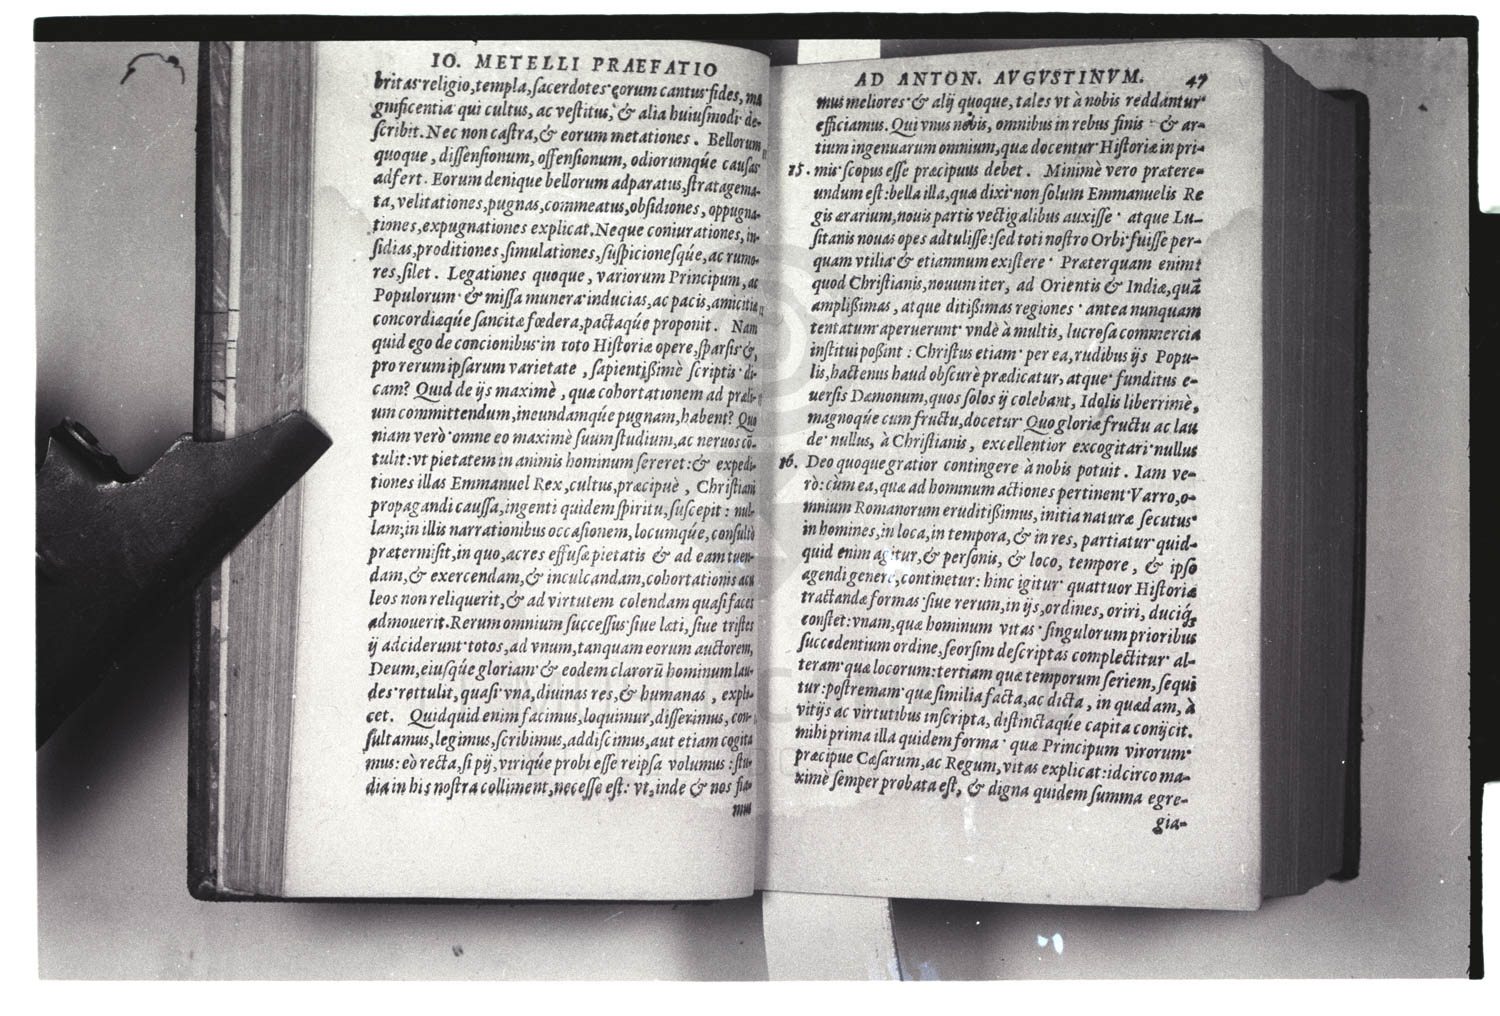 IO. METELLI PRAEFATIO
britas religio, templa, sacerdotes eorum cantus fides, ma
gnificentia qui cultus, ac vestitus, & alia huiusmodi de-
scribit. Nec non castra, & eorum metationes. Bellorum
quoque, dissensionum, offensionum, odiorumqúe causas
adfert. Eorum denique bellorum adparatus, stratagema-
ta, velitationes, pugnas, commeatus, obsidiones, oppugna-
tiones, expugnationes explicat. Neque coniurationes, in-
sidias, proditiones, simulationes, suspicionesqúe, ac rumo-
res, silet. Legationes quoque, variorum Principum, ac
Populorum & missa munera inducias, ac pacis, amicitiæ
concordiæqúe sancita fœdera, pactaqúe proponit. Nam
quid ego de concionibus in toto Historiæ opere, sparsis &,
pro rerum ipsarum varietate, sapientißimè scriptis di-
cam? Quid de ijs maximè, quæ cohortationem ad præli-
um committendum, ineundamqúe pugnam, habent? Quo
niam verò omne eo maximè suum studium, ac neruos cō-
tulit: vt pietatem in animis hominum sereret: & expedi-
tiones illas Emmanuel Rex, cultus, præcipuè, Christiani
propagandi caussa, ingenti quidem spiritu, suscepit: nul-
lam, in illis narrationibus occasionem, locumqúe, consultò
prætermisit, in quo, acres effusæ pietatis & ad eam tuen-
dam, & exercendam, & inculcandam, cohortationis acu
leos non reliquerit, & ad virtutem colendam quasi faces
admouerit. Rerum omnium successus siue læti, siue tristes
ij adciderunt totos, ad vnum, tanquam eorum auctorem,
Deum, eiusqúe gloriam & eodem clarorū hominum lau-
des rettulit, quasi vna, diuinas res, & humanas, expli-
cet. Quidquid enim facimus, loquimur, disserimus, con-
sultamus, legimus, scribimus, addiscimus, aut etiam cogita
mus: eò recta, si pij, viriqúe probi esse reipsa volumus: stu-
dia in his nostra colliment, necesse est: vt, inde & nos fia-
mus
AD ANTON. AVGVSTINVM. 47
mus meliores & alij quoque, tales vt à nobis reddantur
efficiamus. Qui vnus nobis, omnibus in rebus finis & ar-
tium ingenuarum omnium, quæ docentur Historiæ in pri-
15. mis scopus esse præcipuus debet. Minimè vero prætere-
undum est: bella illa, quæ dixi non solum Emmanuelis Re
gis ærarium, nouis partis vectigalibus auxisse atque Lu-
sitanis nouas opes adtulisse: sed toti nostro Orbi fuisse per-
quam vtilia & etiamnum existere Præterquam enim
quod Christianis, nouum iter, ad Orientis & Indiæ, quā
amplißimas, atque ditißimas regiones antea nunquam
tentatum aperuerunt vndè à multis, lucrosa commercia
institui poßint: Christus etiam per ea, rudibus ijs Popu-
lis, hactenus haud obscurè prædicatur, atque funditus e-
uersis Dæmonum, quos solos ij colebant, Idolis liberrimè,
magnoqúe cum fructu, docetur Quo gloriæ fructu ac lau
de nullus, à Christianis, excellentior excogitari nullus
16. Deo quoque gratior contingere à nobis potuit. Iam ve-
rò: cùm ea, quæ ad hominum actiones pertinent Varro, o-
mnium Romanorum eruditißimus, initia naturæ secutus
in homines, in loca, in tempora, & in res, partiatur quid-
quid enim agitur, & personis, & loco, tempore, & ipso
agendi genere, continetur: hinc igitur quattuor Historiæ
tractandæ formas siue rerum, in ijs, ordines, oriri, duciq́;
constet: vnam, quæ hominum vitas singulorum prioribus
succedentium ordine, seorsim descriptas complectitur al-
teram quæ locorum: tertiam quæ temporum seriem, sequi
tur: postremam quæ similia facta, ac dicta, in quædam, à
vitijs ac virtutibus inscripta, distinctaqúe capita conijcit.
mihi prima illa quidem forma quæ Principum virorum
præcipue Cæsarum, ac Regum, vitas explicat: idcirco ma-
ximè semper probata est, & digna quidem summa egre-
gia-